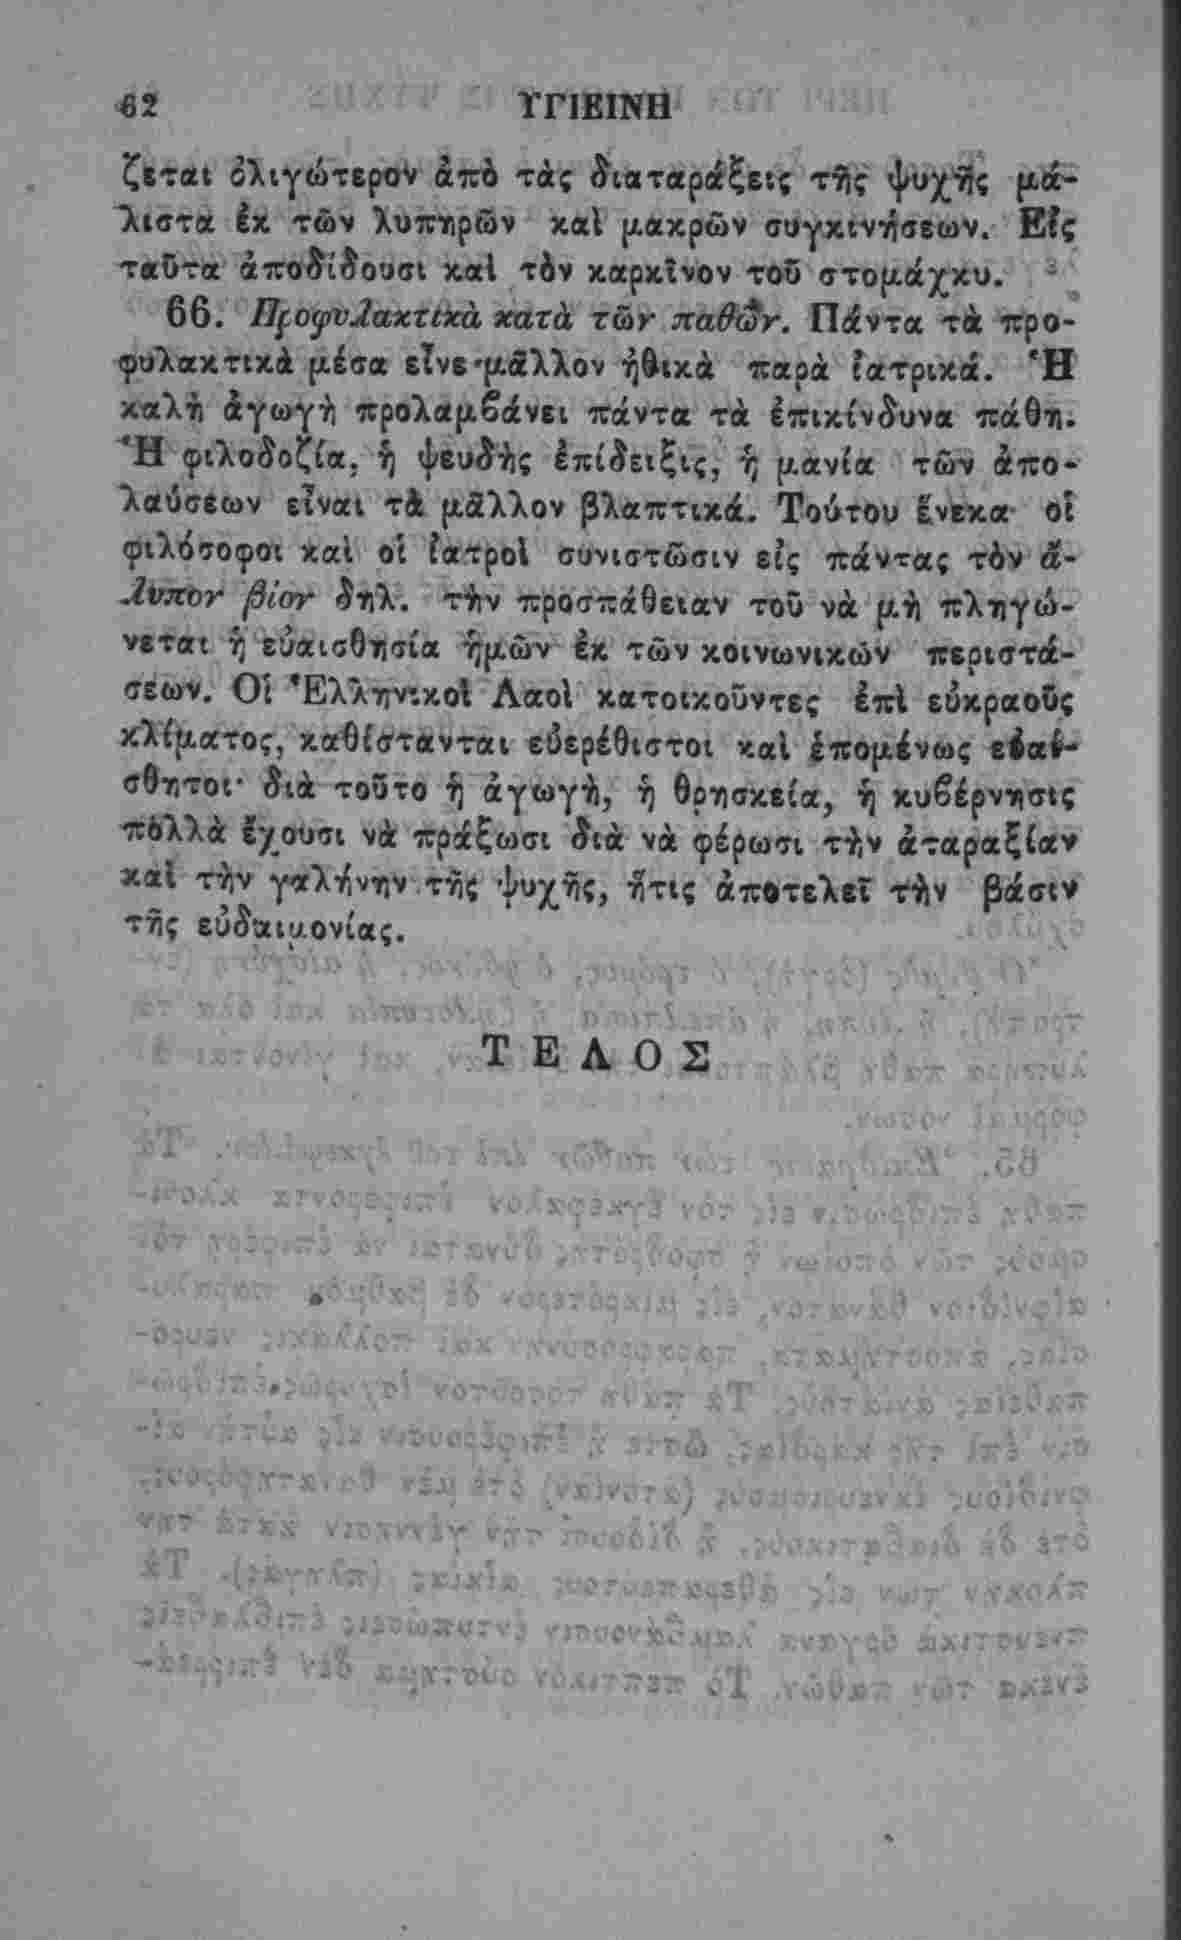 62 ΥΓΙΕΙΝΗ
ζεται ὀλιγώτερον ἀπὸ τὰς διαταράξεις τῆς ψυχῆς μά-
λιστα ἐκ τῶν λυπηρῶν καὶ μακρῶν συγκινήσεων. Εἰς
ταῦτα ἀποδίδουσι καὶ τὸν καρκῖνον τοῦ στομάχκυ.
66. Προφυλακτικὰ κατὰ τῶν παθῶν. Πάντα τὰ προ-
φυλακτικὰ μέσα εἶνε μᾶλλον ἠθικὰ παρὰ ἰατρικά. Ἡ
καλὴ ἀγωγὴ προλαμβάνει πάντα τὰ ἐπικίνδυνα πάθη.
Ἡ φιλοδοζία, ἡ ψευδὴς ἐπίδειξις, ἡ μανία τῶν ἀπο-
λαύσεων εἶναι τὰ μᾶλλον βλαπτικά. Τούτου ἕνεκα οἱ
φιλόσοφοι καὶ οἱ ἰατροὶ συνιστῶσιν εἰς πάντας τὸν ἄ-
λυπον βίον δηλ. τὴν προσπάθειαν τοῦ νὰ μὴ πληγώ-
νεται ἡ εὐαισθησία ἡμῶν ἐκ τῶν κοινωνικῶν περιστά-
σεων. Οἱ Ἑλληνικοὶ Λαοὶ κατοικοῦντες ἐπὶ εὐκραοῦς
κλίματος, καθίστανται εὐερέθιστοι καὶ ἑπομένως εὐαί-
σθητοι· διὰ τοῦτο ἡ ἀγωγὴ, ἡ θρησκεία, ἡ κυβέρνησις
πολλὰ ἔχουσι νὰ πράξωσι διὰ νὰ φέρωσι τὴν ἀταραξίαν
καὶ τὴν γαλήνην τῆς ψυχῆς, ἥτις ἀποτελεῖ τὴν βάσιν
τῆς εὐδαιμονίας.
ΤΕΛΟΣ